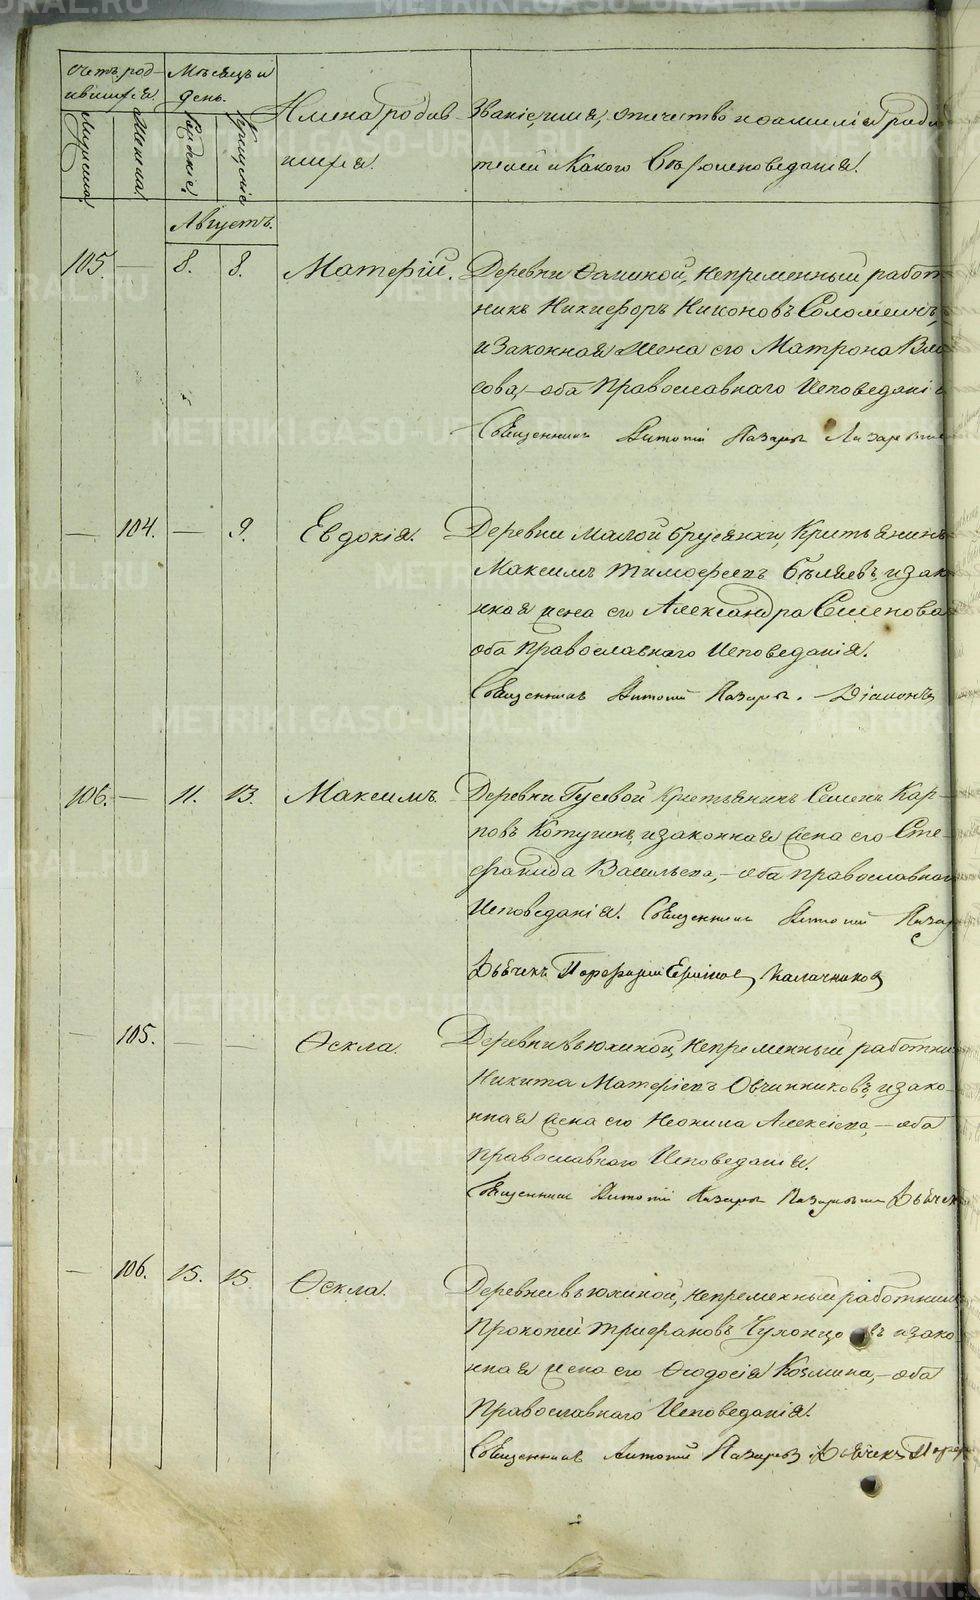 Счетъ род-
ившихся.
Мужеска.
Женска.
Мѣсяцъ и
день.
Рожденiе.
Крещенiе
Имена родив-
шихся.
Званiе, имя, отчество и фамилiя роди-
телей и Какого Вѣроисповеданiя.
Августъ.
105. — 8. 8. Матерiй. Деревни Фоминой, Непременный работ-
никъ Никифоръ Никоновъ Соломеинъ,
и Законная жена его Матрона Вла-
сова, – оба Православнаго Исповеданiя
Священникъ Антонiй Лазаревъ
— 104. — 9. Евдокiя. Деревни Малой Брусянки, Крестьянинъ
Максимъ Тимофеевъ Бѣляевъ, и зако-
нная жена его Александра Семенова
оба Православнаго Исповеданiя.
Священникъ Антонiй Лазаревъ. Дiаконъ
106. — 11. 13. Максимъ. Деревни Гусевой Крестьянинъ Семенъ Кар-
повъ Котугинъ, и законная жена его Сте-
фанида Васильева, – оба православнаго
Исповеданiя. Священникъ Антонiй Лазар
Дьячекъ Порфирiй Калачниковъ
— 105. — — Ѳекла. Деревни Вьюхиной, Непременный работни
Никита Матерiевъ Овчинниковъ, и зако-
нная жена его Неонила Алексiева, – оба
православнаго Исповеданiя.
Священникъ Антонiй Лазаревъ Дьячекъ
— 106. 15. 15. Ѳекла. Деревни Вьюхиной, непременный работникъ
Прокопiй Трифановъ Чухонцовъ и зако-
нная жена его Ѳеодосiя Козмина, – оба
Православнаго Исповеданiя.
Священникъ Антонiй Лазаревъ Дьячекъ Порф